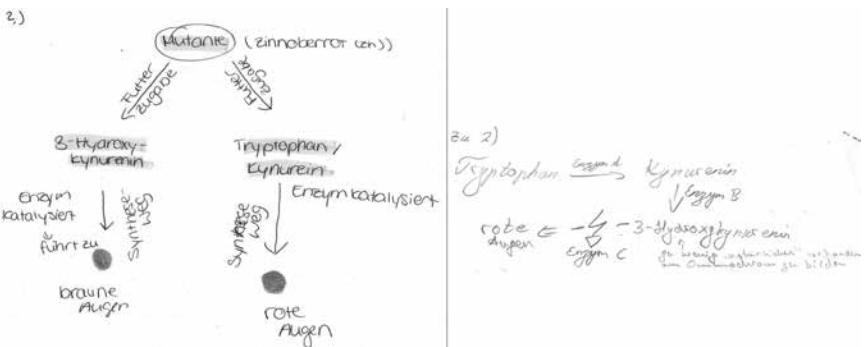 2.)
Mutante (zinnoberrot (zn))
Futter
zugabe
Futter
zugabe
3-Hydroxy-
kynurenin
Tryptophan /
Kynurein
Enzym
katalysiert
Synthese-
weg
führt zu
braune
Augen
Enzym katalysiert
Synthese
weg
rote
Augen
zu 2)
Tryptophan Enzym A Kynurenin
Enzym B
rote
Augen
3-Hydroxykynurenin
Enzym C
zu wenig vorhanden
um zu bilden